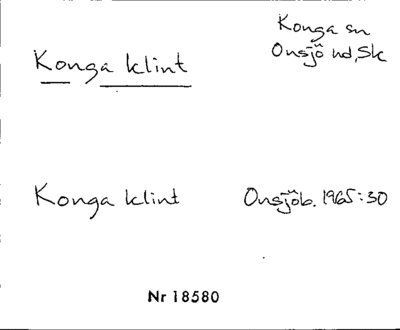 Konga sn
Onsjö hd, Sk
Konga klint
Konga klint Onsjöb. 1965:30
Nr 18580